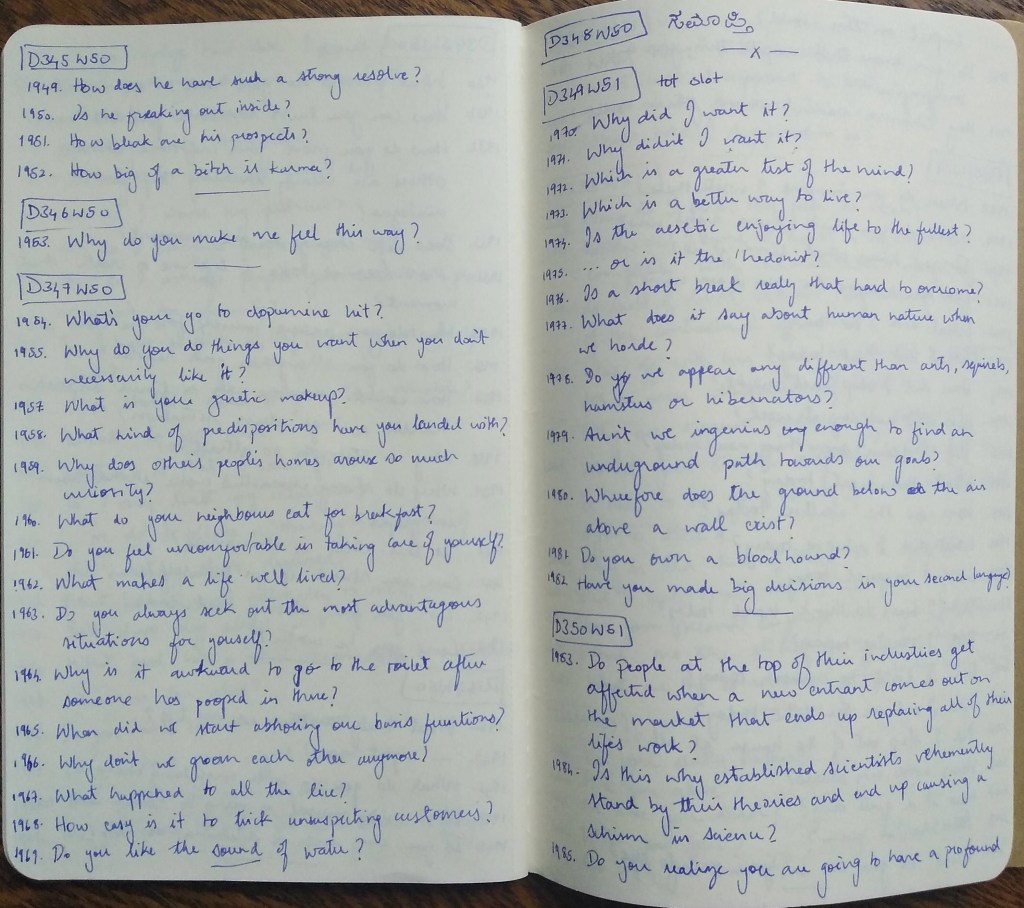 D345W50
1949. How does he have such a strong resolve?
1950. Is he freaking out inside?
1951. How bleak are his prospects?
1952. How big of a bitch is karma?
D346W50
1953. Why do you make me feel this way?
D347W50
1954. What's your go to dopamine hit?
1955. Why do you do things you want when you don't
necessarily like it?
1957. What is your genetic makeup?
1958. What kind of predispositions have you landed with?
1959. Why does other's people's homes arouse so much
curiosity?
1960. What do your neighbours eat for breakfast?
1961. Do you feel uncomfortable in taking care of yourself?
1962. What makes a life well lived?
1963. Do you always seek out the most advantageous
situations for yourself?
1964. Why is it awkward to go to the toilet after
someone has pooped in there?
1965. When did we start abhoring our basis functions?
1966. Why don't we groom each other anymore?
1967. What happened to all the lice?
1968. How easy is it to trick unsuspecting customers?
1969. Do you like the sound of water?
D348W50 ಸಮಾಪ್ತಿ
— x —
D349W51 tot slot
1970. Why did I want it?
1971. Why didn't I want it?
1972. Which is a greater test of the mind?
1973. Which is a better way to live?
1974. Is the aesetic enjoying life to the fullest?
1975. ... or is it the hedonist?
1976. Is a short break realy that hard to overcome?
1977. What does it say about human nature when
we horde?
1978. Do we appear any different than ants, squirels,
hamsters or hibernators?
1979. Aren't we ingenius enough to find an
underground path towards our goals?
1980. Wherefore does the ground below the air
above a wall exist?
1981. Do you own a bloodhound?
1982. Have you made big decisions in your second language?
D350W51
1983. Do people at the top of their industries get
affected when a new entrant comes out on
the market that ends up replacing all of their
life's work?
1984. Is this why established scientists vehemently
stand by their theories and end up causing a
schism in science?
1985. Do you realize you are going to have a profound